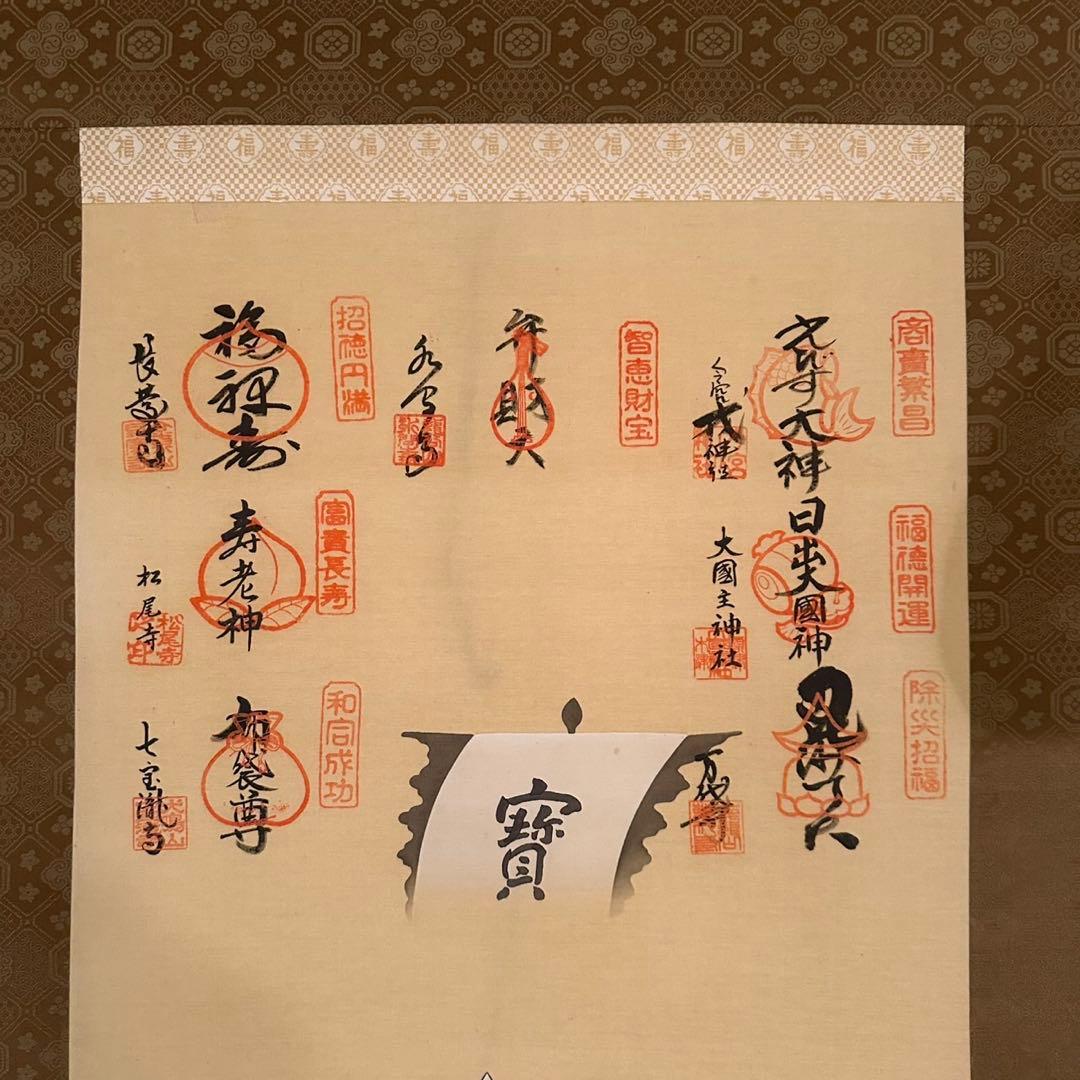 福 寿 福 寿 福 寿 福 寿 福 寿 福 寿 福 寿
商賣繁昌
大神
戎神社
福德開運
日出大國神
大國主神社
除災招福
毘沙門天
万代寺
智恵財宝
弁財天
招徳円満
福禄寿
富貴長寿
寿老神
松尾寺
松尾寺
和合成功
布袋尊
七宝瀧寺
寶